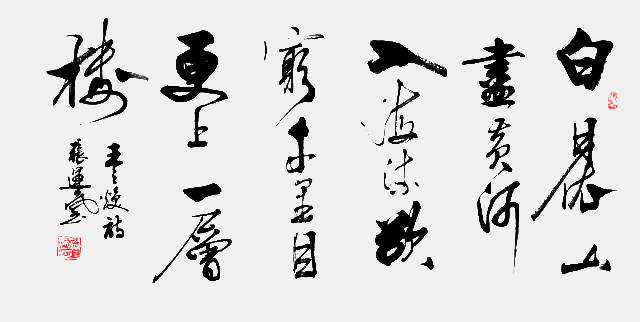 白日依山
盡黄河
入海流欲
窮千里目
更上一層
樓
王之渙詩
張運